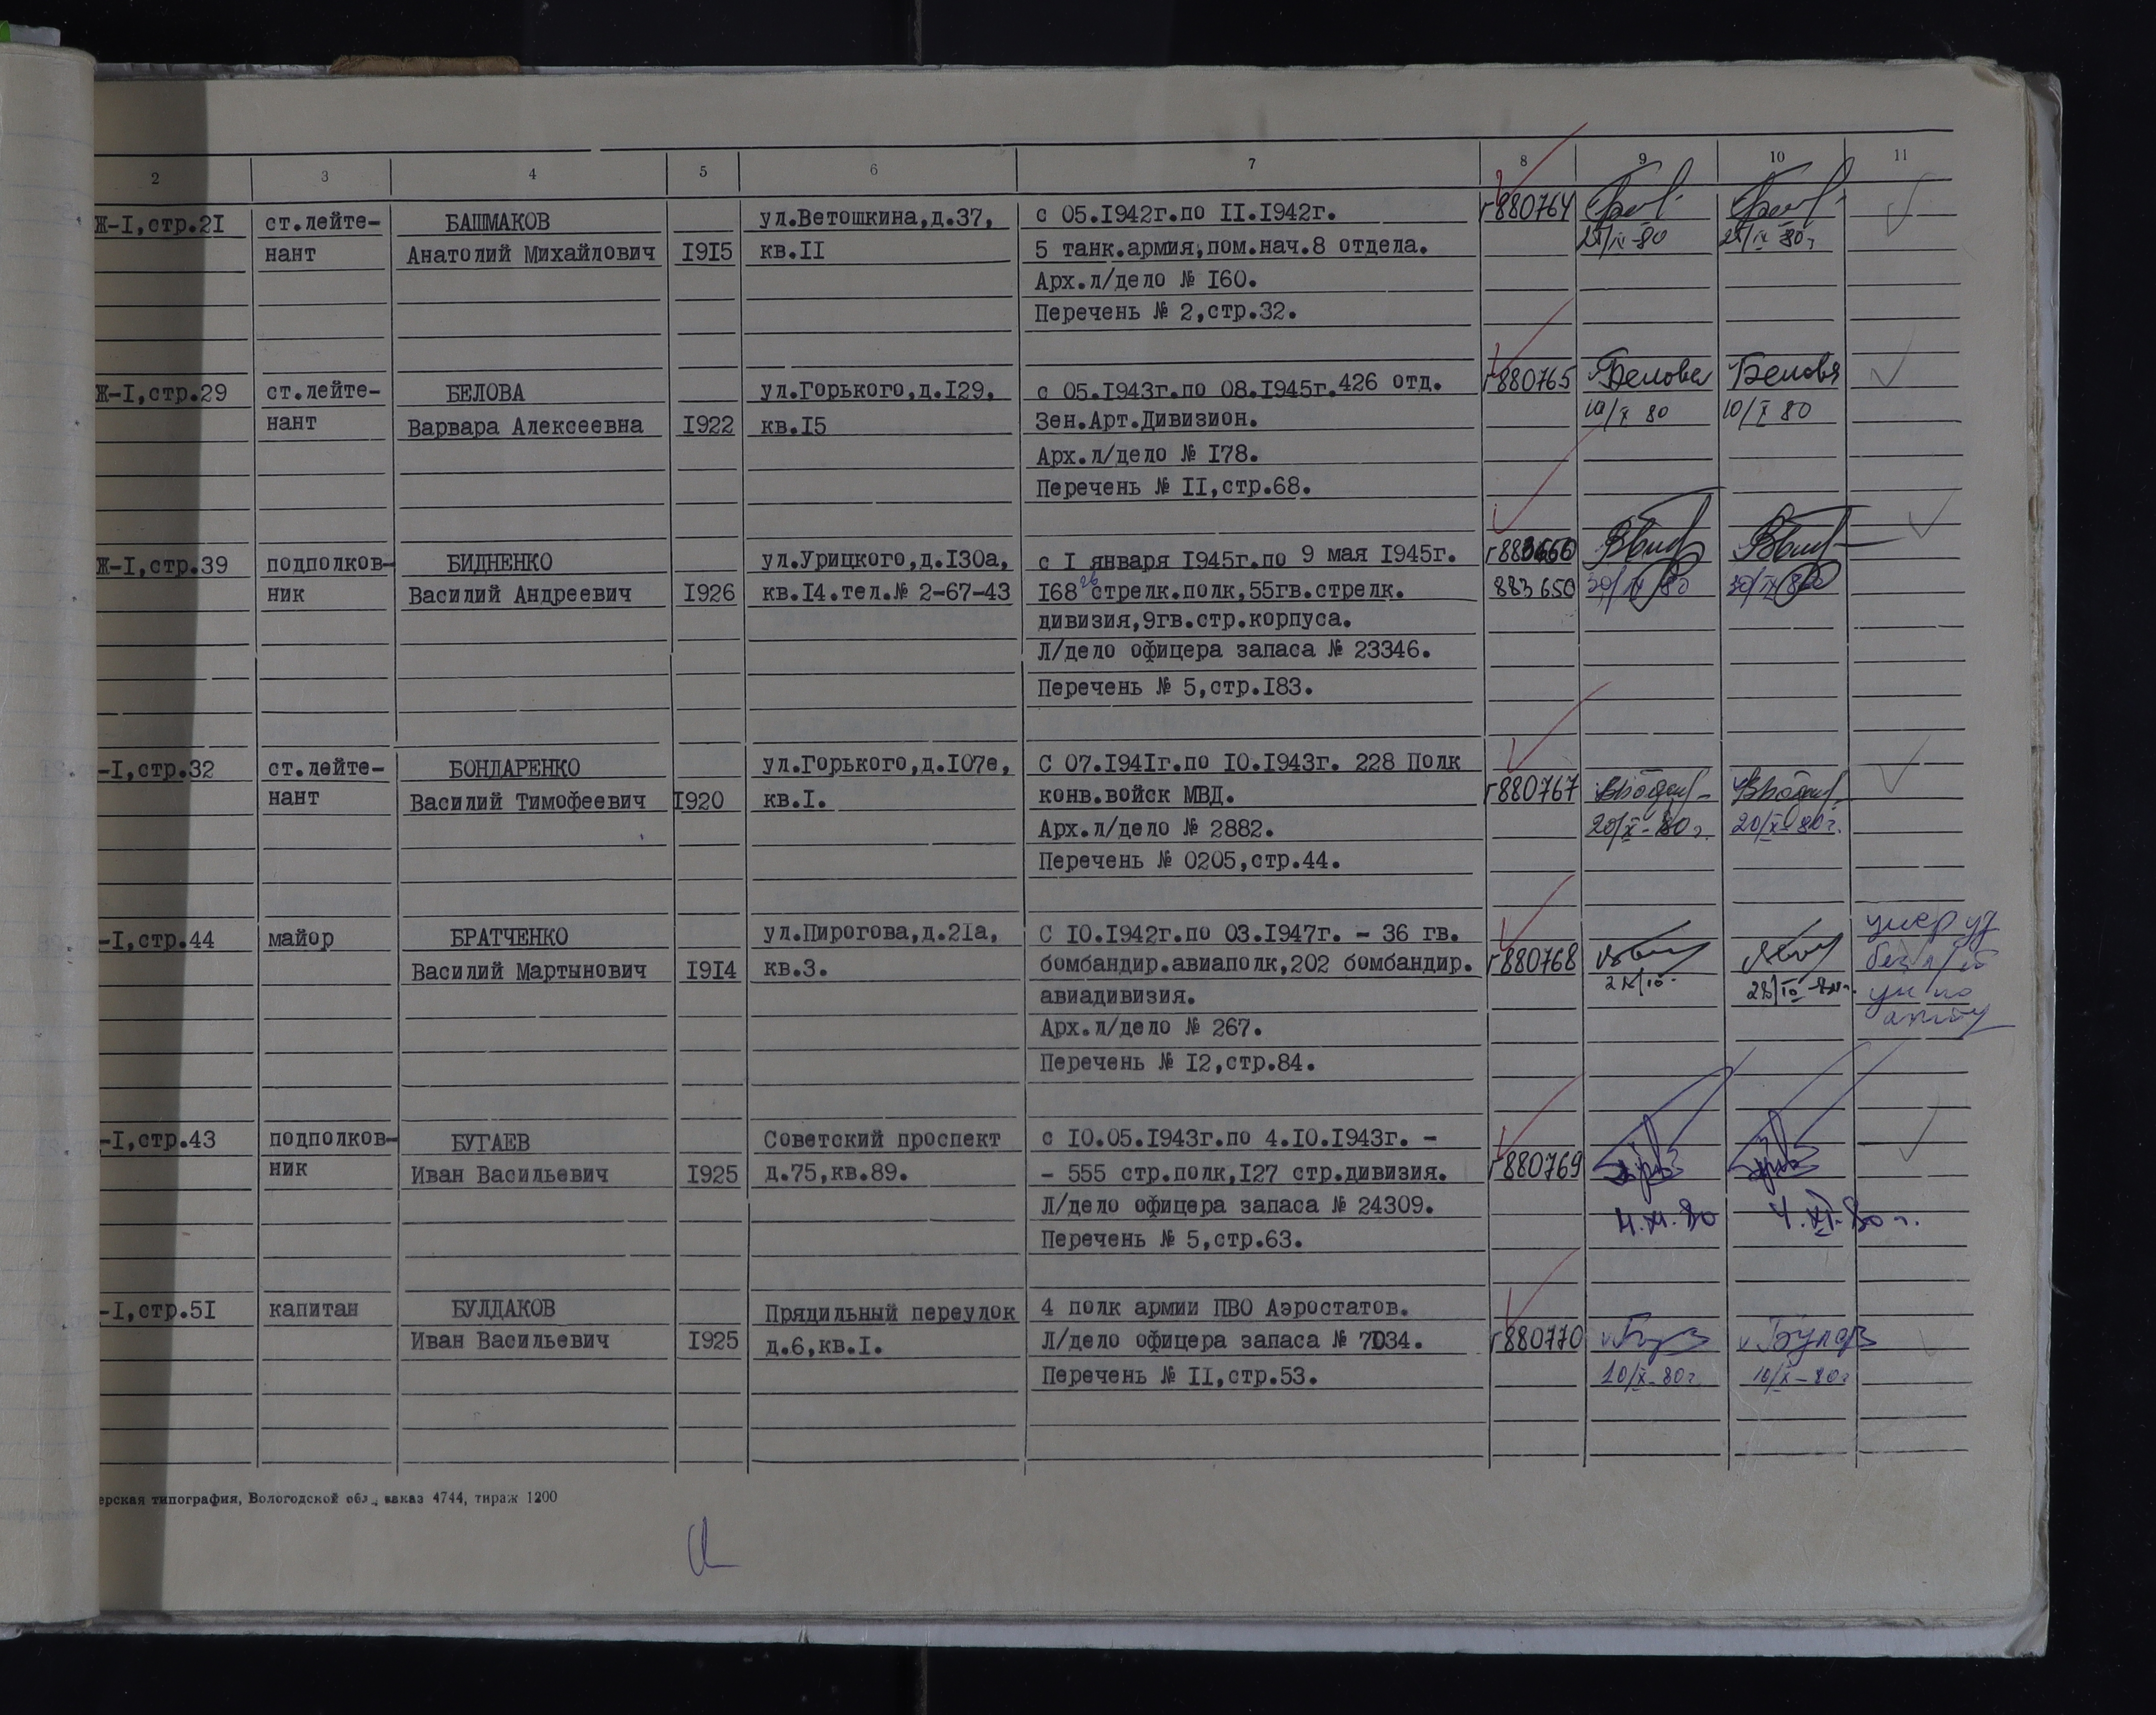 2 3 4 5 6 7 8 9 10 11
Ж-I,стр.2I ст.лейте- БАШМАКОВ ул.Ветошкина,д.37, с 05.I942г.по II.I942г. г880764
нант Анатолий Михайлович I9I5 кв.II 5 танк.армия,пом.нач.8 отдела.
Арх.л/дело № I60.
Перечень № 2,стр.32.
Ж-I,стр.29 ст.лейте- БЕЛОВА ул.Горького,д.I29, с 05.I943г.по 08.I945г.426 отд. г880765 Белова Белова
нант Варвара Алексеевна I922 кв.I5 Зен.Арт.Дивизион. 10/X 80 10/X 80
Арх.л/дело № I78.
Перечень № II,стр.68.
Ж-I,стр.39 подполков- БИДНЕНКО ул.Урицкого,д.I30а, с I января I945г.по 9 мая I945г.
ник Василий Андреевич I926 кв.I4.тел.№ 2-67-43 I68 стрелк.полк,55гв.стрелк. 883650
дивизия,9гв.стр.корпуса.
Л/дело офицера запаса № 23346.
Перечень № 5,стр.I83.
-I,стр.32 ст.лейте- БОНДАРЕНКО ул.Горького,д.I07е, С 07.I94Iг.по I0.I943г. 228 Полк
нант Василий Тимофеевич I920 кв.I. конв.войск МВД. г880767
Арх.л/дело № 2882. 20/X-80г. 20/X-80г.
Перечень № 0205,стр.44.
-I,стр.44 майор БРАТЧЕНКО ул.Пирогова,д.2Iа, С I0.I942г.по 03.I947г. - 36 гв.
Василий Мартынович I9I4 кв.3. бомбандир.авиаполк,202 бомбандир. г880768
авиадивизия.
Арх.л/дело № 267.
Перечень № I2,стр.84.
-I,стр.43 подполков- БУГАЕВ Советский проспект с I0.05.I943г.по 4.I0.I943г. -
ник Иван Васильевич I925 д.75,кв.89. - 555 стр.полк,I27 стр.дивизия. г880769
Л/дело офицера запаса № 24309. 4.XI.80 4.XI-80г.
Перечень № 5,стр.63.
-I,стр.5I капитан БУЛДАКОВ Прядильный переулок 4 полк армии ПВО Аэростатов.
Иван Васильевич I925 д.6,кв.I. Л/дело офицера запаса № 7034. г880770
Перечень № II,стр.53. 10/X-80г 10/X-80г
ерская типография, Вологодской обл., заказ 4744, тираж 1200